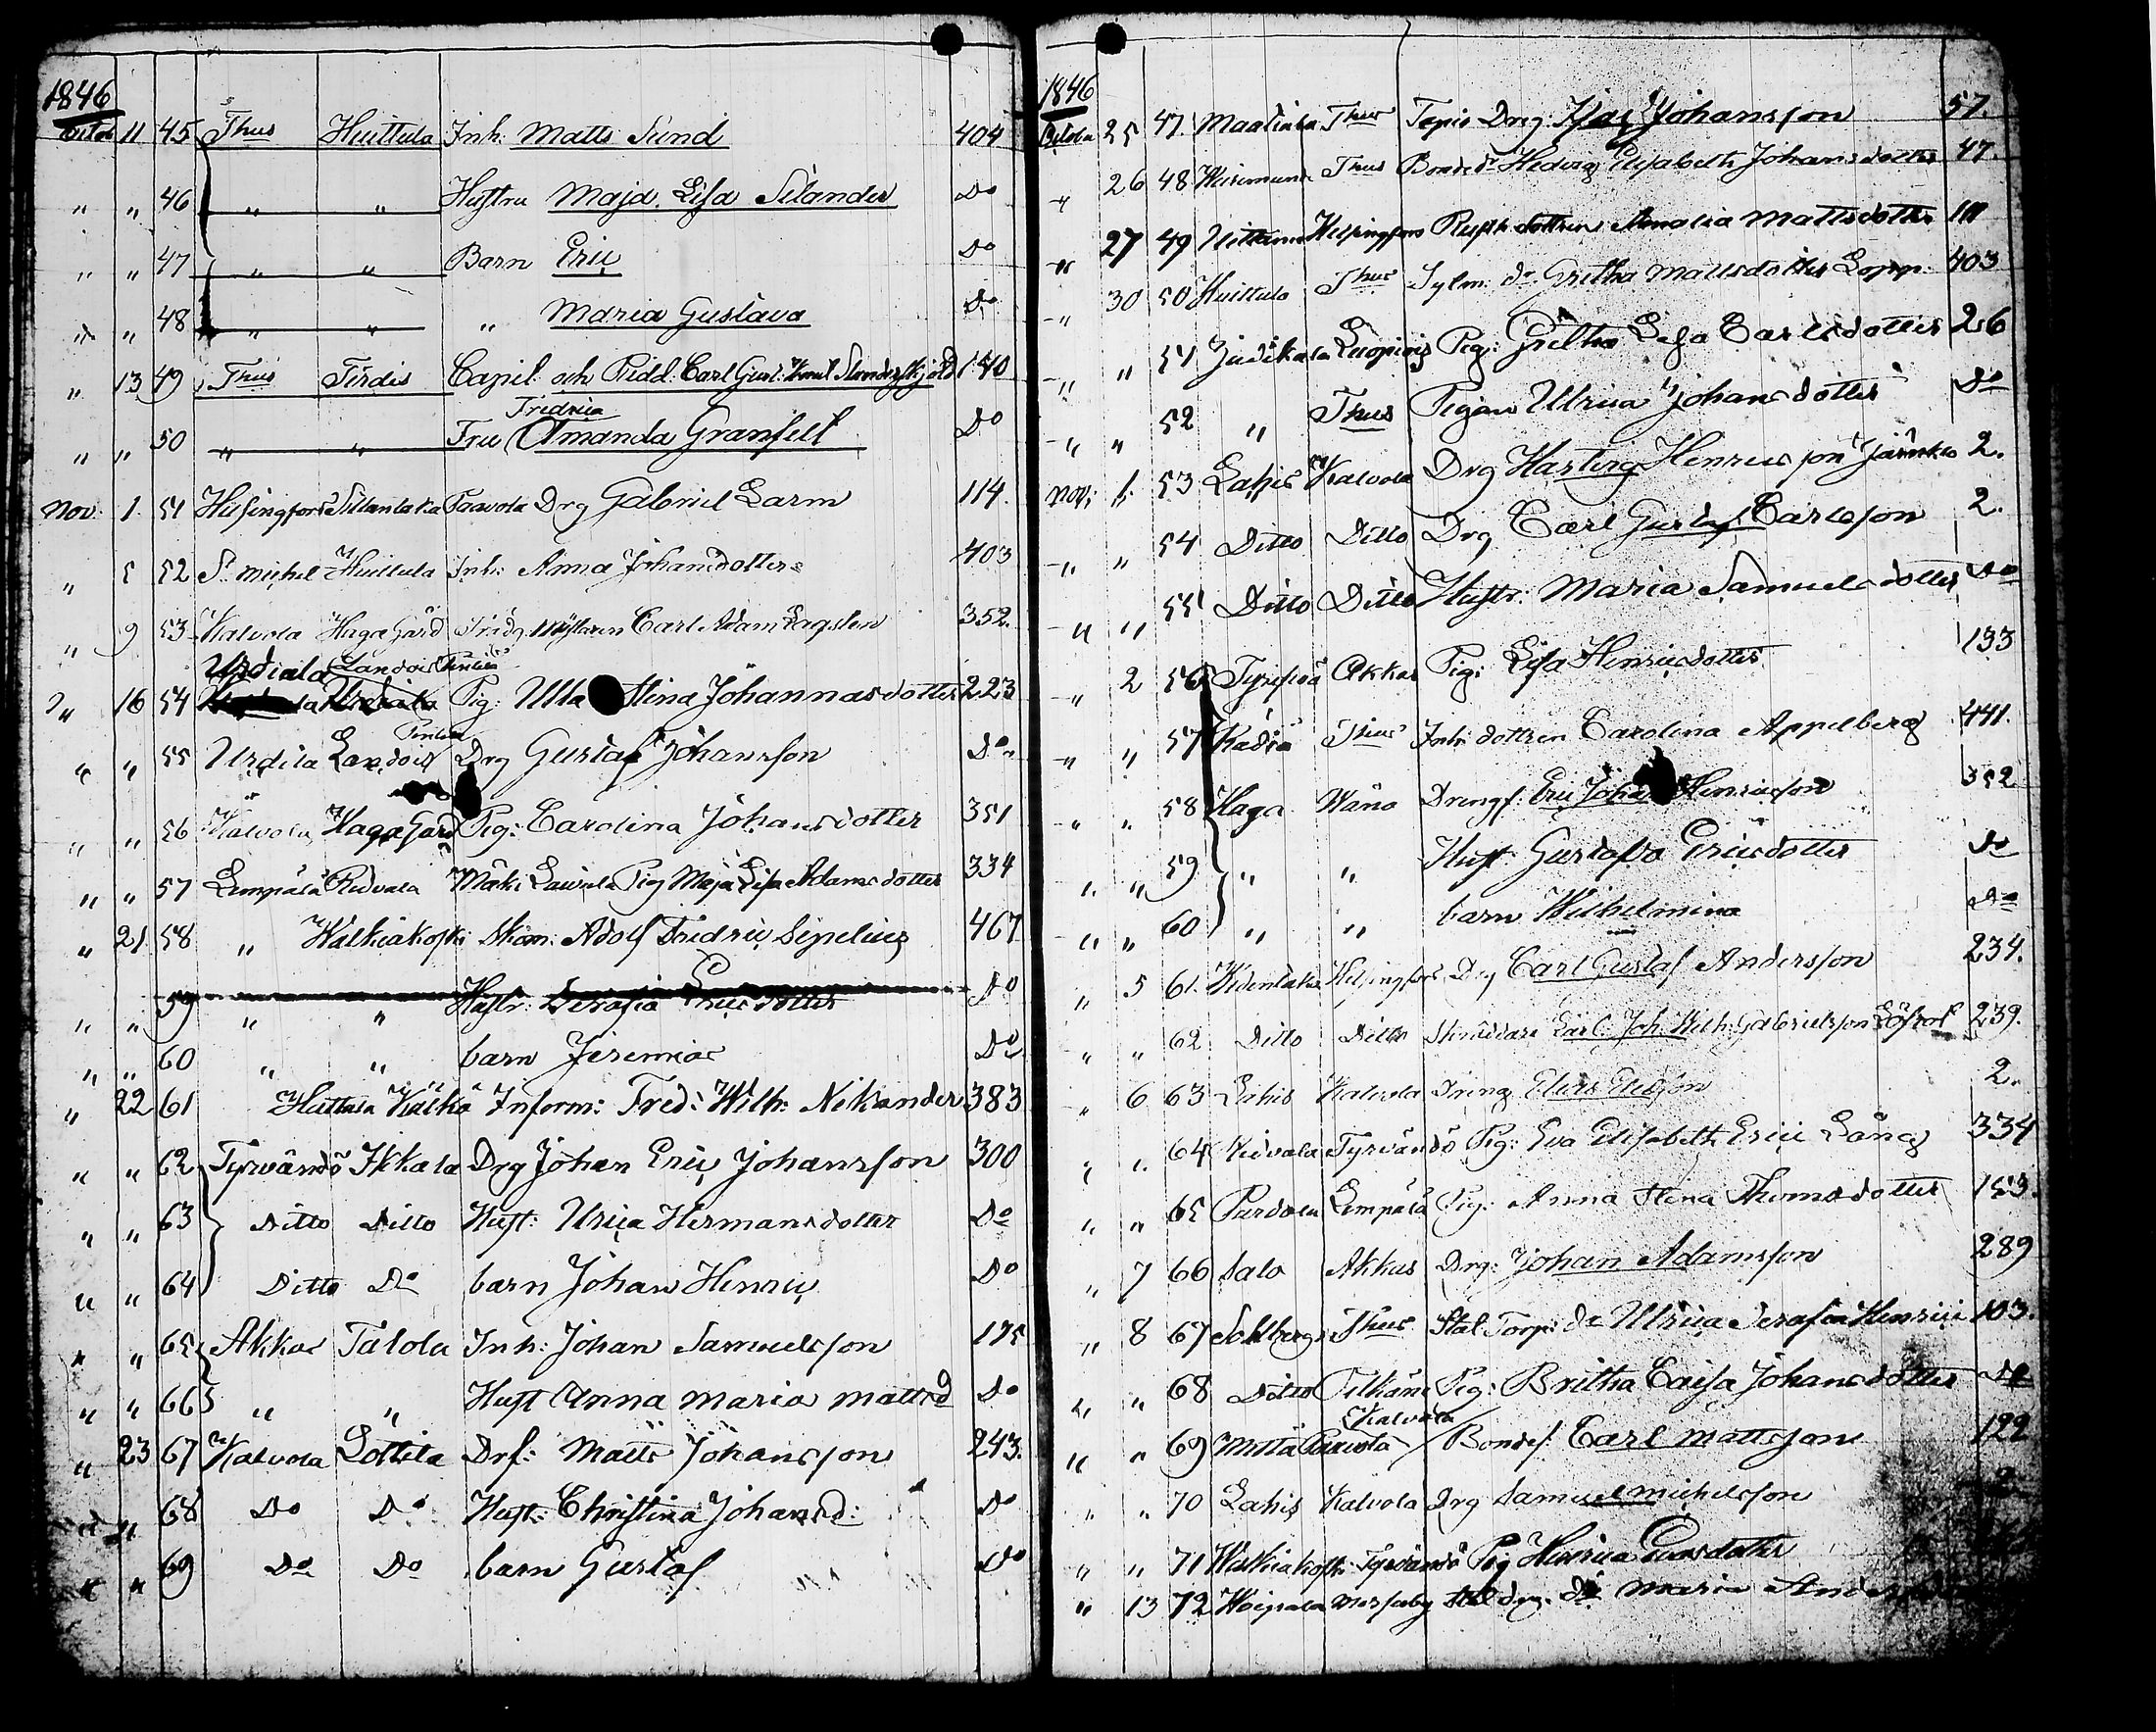 1846
Octob 11 45 Thus Huittula Inh: Matts Sund 404
" " 46 " " Hustru Maja Lisa Silander Do
" " 47 " " Barn Eric Do
" " 48 " " " Maria Gustava Do
" 13 49 Thus Tirdis Capit: och Ridd: Carl Gust: 140
Fredrica
" " 50 " " Fru Amanda Granfelt Do
Nov: 1. 51 Helsingfors Sillantaka Paavola Drg Gabriel Larm 114.
" 5 52 St Michel Huittula Inh: Anna Johansdotter 403
" 9 53 Kalvola Haga Gård Carl Adam Lagsten 352.
Urdiala Landois
" 16 54 Pig: Ulla Stina Johannasdotter 223
" " 55 Urdila Landois Drg Gustaf Johansson Do
" " 56 Kalvola Haga Gård Pig: Carolina Johansdotter 351
" " 57 Lempälä Ridvala Mäki Pig Maja Lisa Adamsdotter 334
" 21 58 " Walkiakoski Skom: Adolf Fredric Sipelius 467
" " 59 " " Hustr: Serafia Ericsdotter Do
" " 60 " " barn Jeremias Do
" 22 61 Huttula Inform: Fred: Wilh: Nikander 383
" " 62 Tyrvändö Ikkala Drg Johan Eric Johansson 300
" " 63 Ditto Ditto Hust: Ulrica Hermansdotter Do
" " 64 Ditto Do barn Johan Henric Do
" " 65 Akkas Talola Inh: Johan Samuelsson 175
" " 66 " " Hust Anna Maria Mattsd Do
" 23 67 Kalvola Lottila Drf: Matts Johansson 243.
" " 68 Do Do Hust: Christina Johansd: Do
" " 69 Do Do barn Gustaf Do
1846
Octob 25 47. Maatiala Thus Drg: Isac Johansson 57.
" 26 48 Thus Bonded: Hedvig Elisabeth Johansdotter 47.
" 27 49 Uittamo Helsingfors Rusth dottren Amalia Mattsdotter 111
" 30 50 Huittula Thus Sylm: do Gretha Mattsdotter Lopp: 403
" " 51 Judikala Luopiois Pig: Gretha Lisa Carlsdotter 26
" " 52 " Thus Pigan Ulrica Johansdotter Do
Nov: 1. 53 Lahis Kalvola Drg Hartvig Henricsson 2.
" " 54 Ditto Ditto Drg Carl Gustaf Carlsson 2.
" " 55 Ditto Ditto Hustr: Maria Samuelsdotter Do
" 2 56 Akkas Pig: Lisa Henricsdotter 133
" " 57 Thus Inh: dottren Carolina Appelberg 441.
" " 58 Haga Wåno Drengf: Eric Johan Henricsson 352
" " 59 " " Hust: Gustafva Ericsdotter Do
" " 60 " " barn Wilhelmina Do
" 5 61. Helsingfors Drg Carl Gustaf Andersson 234.
" " 62 Ditto Ditto Skräddare Carl Joh: Wilh: Gabrielsson 239.
" 6 63 Lahis Kalvola Dreng Elias 2.
" " 64 Ridvala Tyrvändö Pig: Eva Elisabeth Eric Lång 334
" " 65 Lempälä Pig: Anna Stina Thomasdotter 153.
" 7 66 Salo Akkas Drg: Johan Adamsson 289
" 8 67 Sohlberg Thus Stat Torp: do Ulrica Serafia Henrici 103.
" " 68 Ditto Pelkäne Pig: Britha Caisa Johansdotter Do
Kalvola
" " 69 Metta Bondes: Carl Mattsson 122
" " 70 Lahis Kalvola Drg Samuel Michelsson 2
" " 71 Walkiakoski Tyrvändö Pig Henrica
" 13 72 Woipala Do Maria